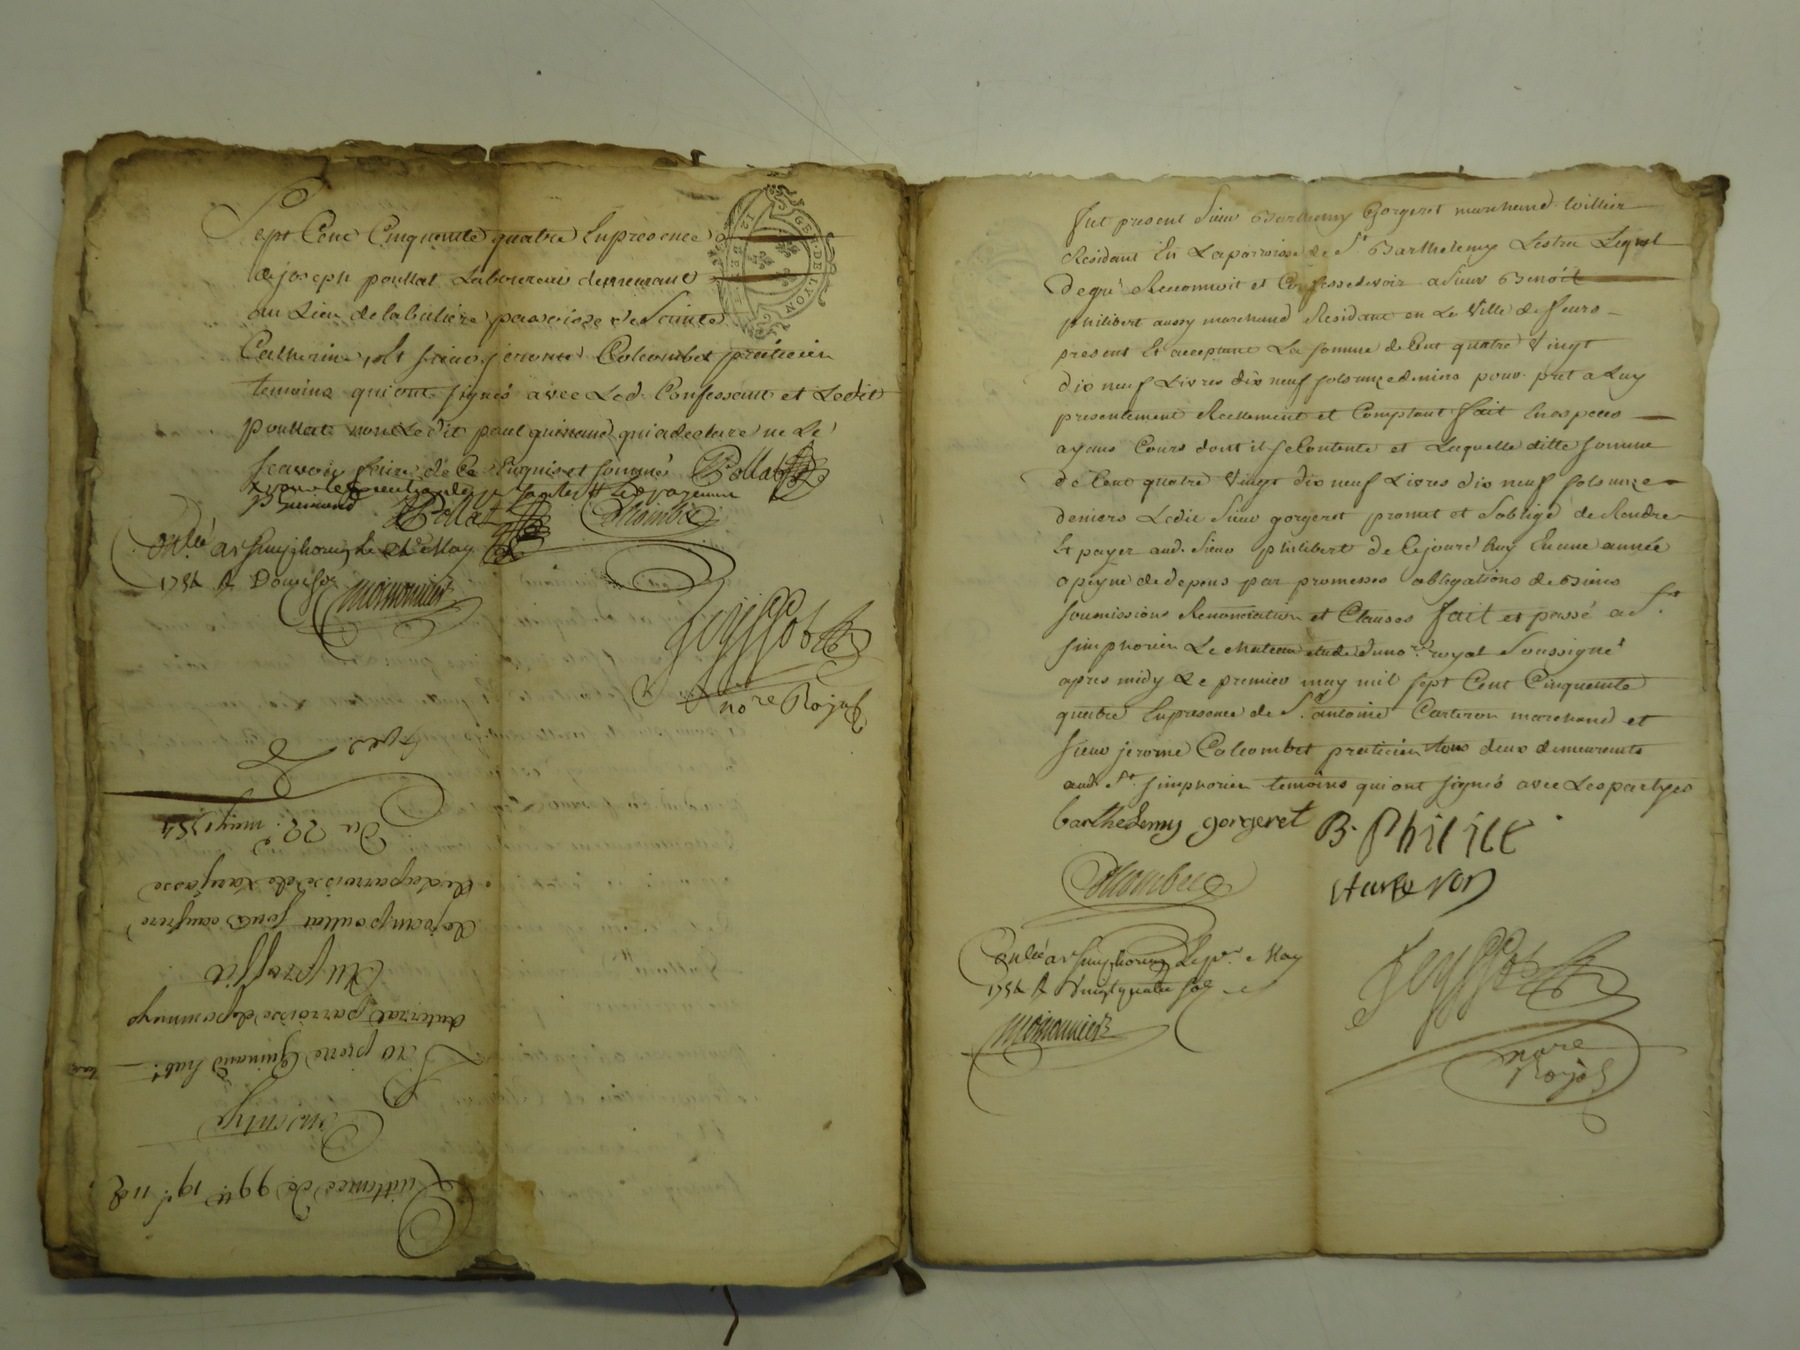 Sept Cent Cinquante quatre En presence
de joseph poullat Laboureur demeurant
au Lieu de labuliere paroisse de Sainte
Catherine, et sieur jerome Colcombet praticien
temoins qui ont signés avec Led. Confessant et Ledit
poullat non Ledit paul guinand qui a declaré ne Le
scavoir faire de Ce Enquis et sommé Pollat
P Guinand Pollat Colcombet
Conllé a st Simphorien le May
1754 R Douze sols
Moirounier
Jeyssot
nore Royal
GEN. DE LYON
Quittance de 99tt 19s 11d
Consentye
Par pierre Guinand habt
parroisse de pommeys
Au proffit
De jean poullat son beaufrere
de la parroisse de Larajasse
Du 22 may 1754
fut present Sieur Barthelemy Gorgeret marchand toillier
Residant En La parroisse de St Barthelemy Lestra Lequel
de gré Reconnoit et Confesse devoir a Sieur Benoit
philibert aussy marchand Residant en La Ville de feurs
present Et acceptant La somme de Cent quatre Vingt
dix neuf Livres dix neuf sols onze deniers pour pret a Luy
presentement Reellement et Comptant fait En especes
ayant Cours dont il se Contente et Laquelle ditte somme
de Cent quatre Vingt dix neuf Livres dix neuf sols onze
deniers Ledit Sieur gorgeret promet et s'oblige de Rendre
Et payer aud. Sieur philibert de Cejourd'huy En une année
a peyne de depens par promesses obligations de Biens
soumissions Renonciation et Clauses fait et passé a St
simphorien Le Chateau etude du nore royal Soussigné
apres midy Le premier may mil sept Cent Cinquante
quatre En presence de Sr antoine Carteron marchand et
sieur jerome Colcombet praticien tous deux demeurants
aud. St simphorien temoins qui ont signés avec Les partyes
barthelemy gorgeret B. Philibe
Colcombet Carteron
Conllé a st Simphorien Le pr. May
1754 R Vingt quatre sols
Moirounier
Jeyssot
nore
Royal